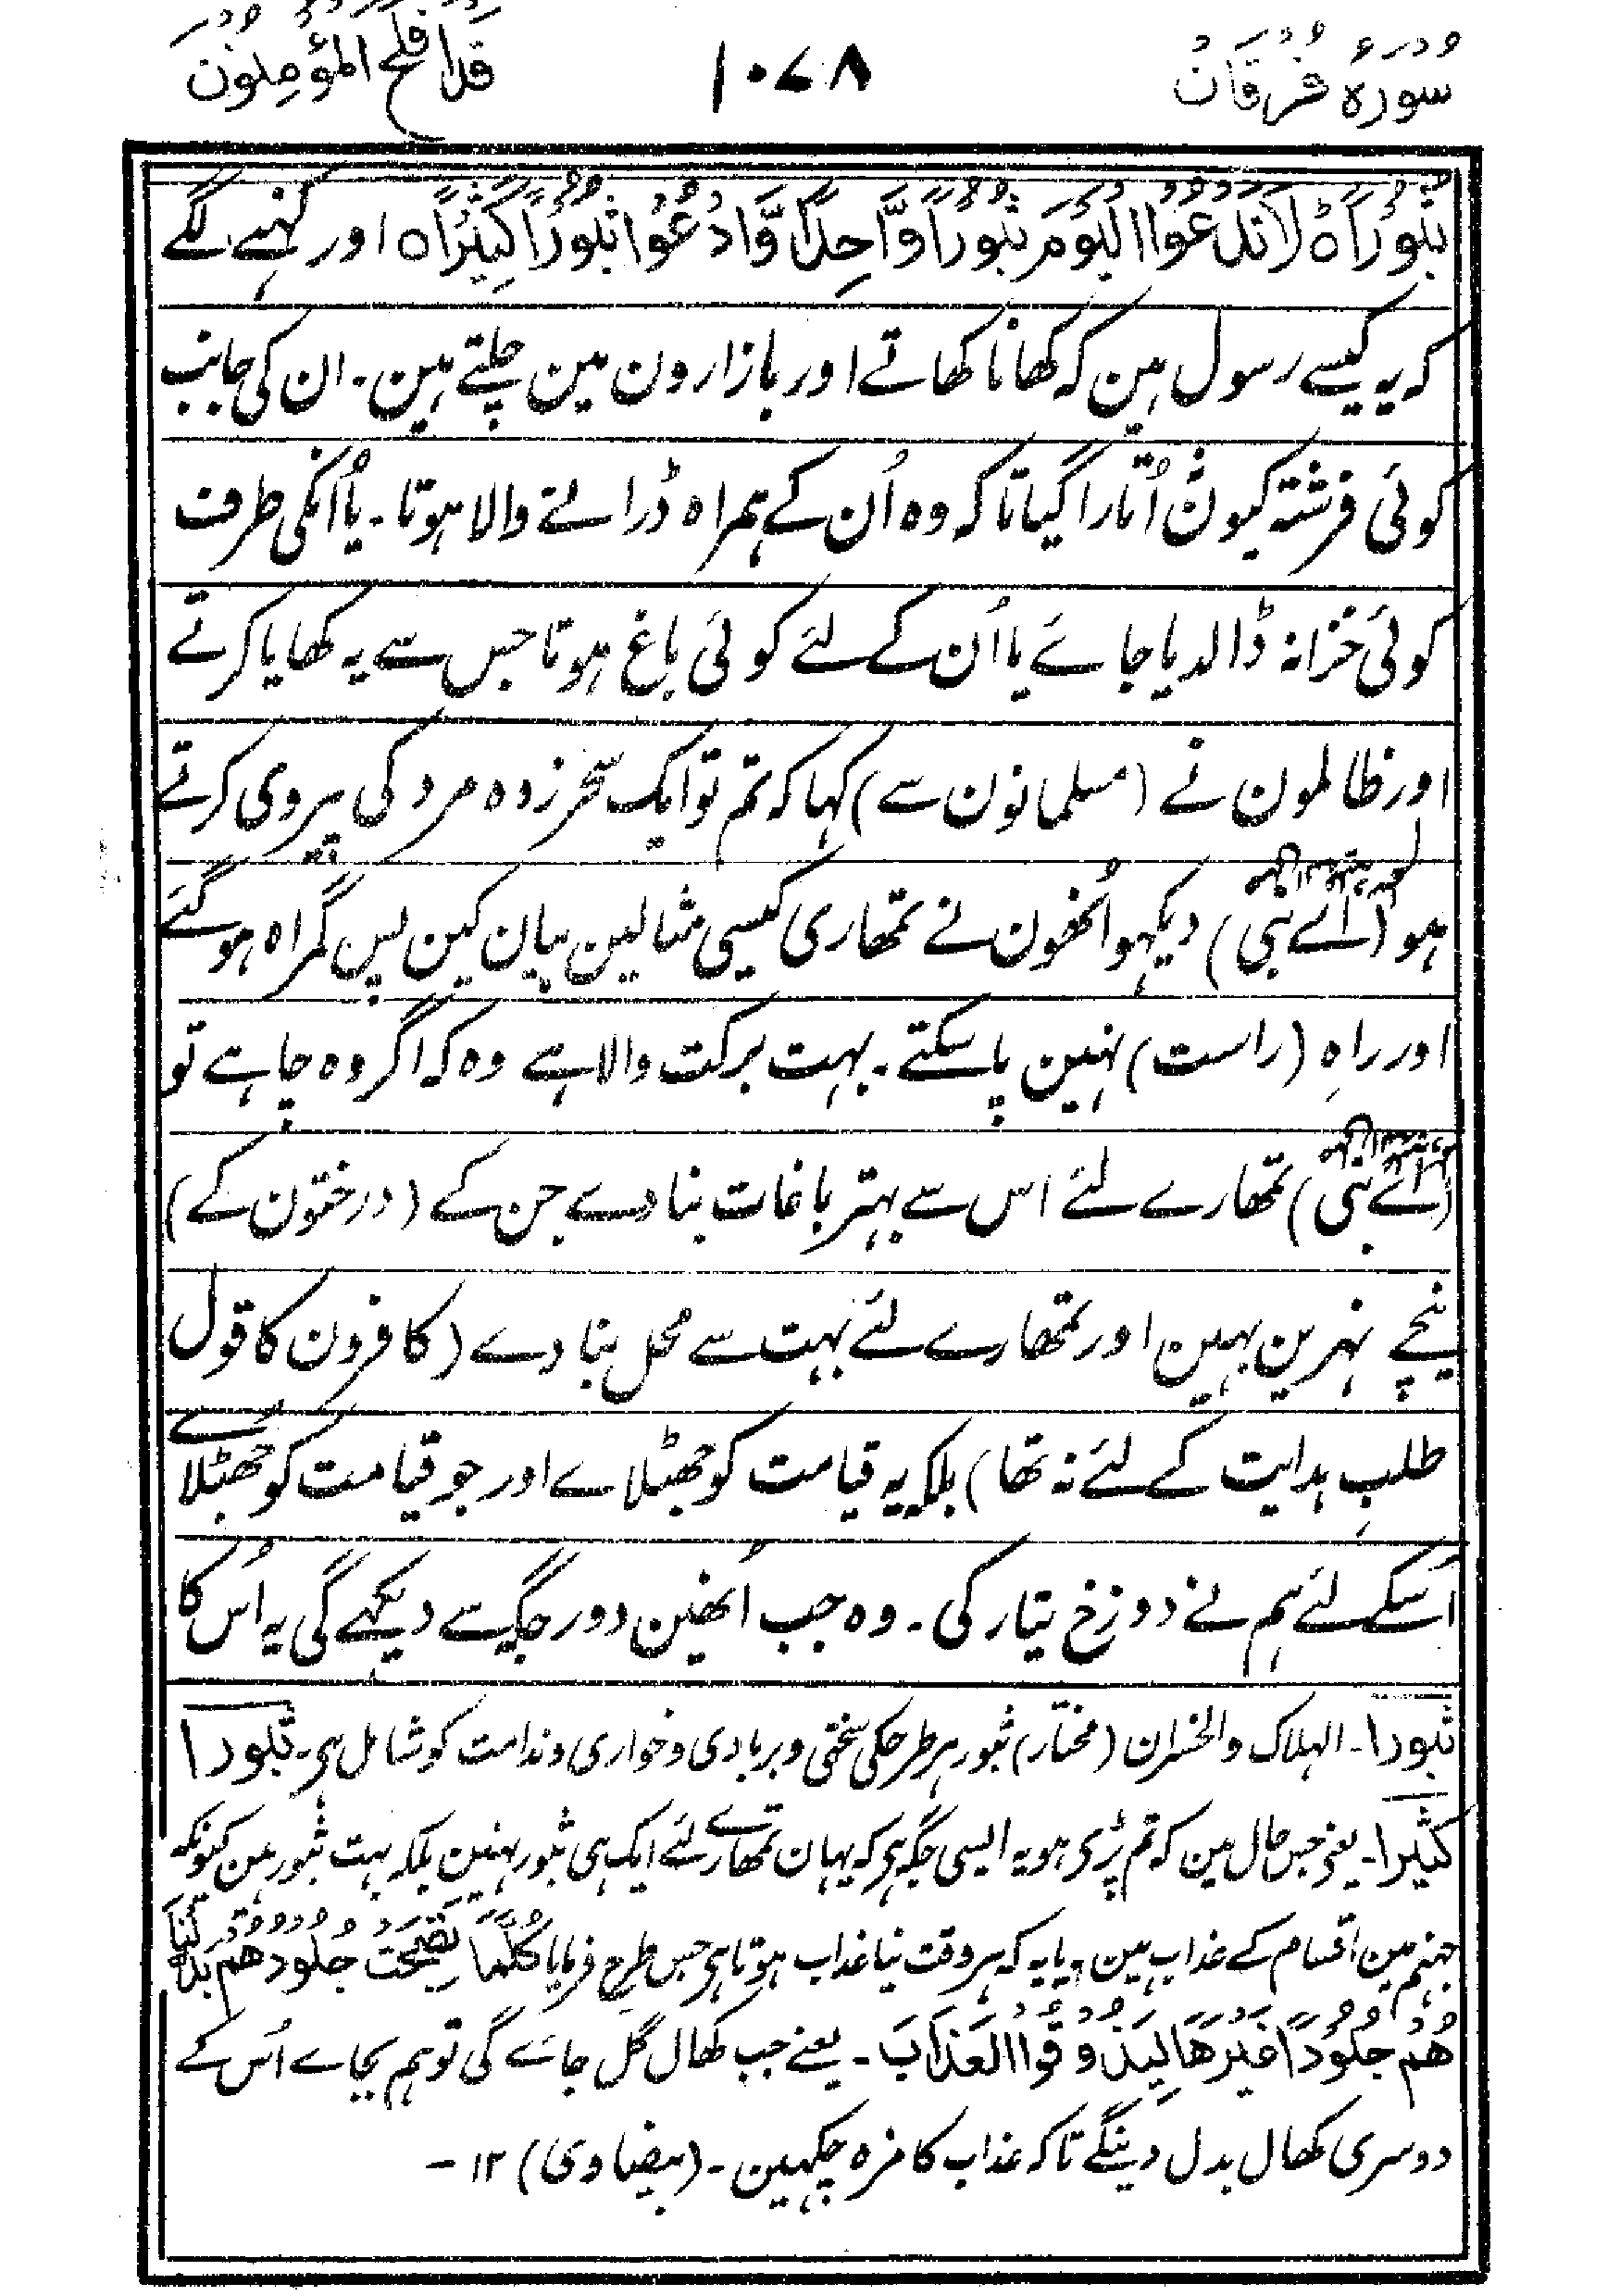 سورهٔ فُرقَان ۱۰۷۸ قَدْ اَفْلَحَ الْمُؤْمِنُوْنَ
ثُبُوْرًا ہؕ لَا تَدْعُوا الْیَوْمَ ثُبُوْرًا وَّاحِدًا وَّادْعُوْا ثُبُوْرًا كَثِیْرًا ہ اور کہنے لگے
کہ یہ کیسے رسول ہین کہ کھانا کھاتے اور بازارون مین چلتے ہین۔ ان کی جانب
کوئی فرشتہ کیون نُ اُتارا گیا تا کہ وہ اُن کے ہمراہ ڈرانے والا ہوتا۔ یا اُنکی طرف
کوئی خزانہ ڈالدیا جائے یا اُن کے لئے کوئی باغ ہوتا جس سے یہ کھایا کرتے
اور ظالمون نے (مسلمانون سے) کہا کہ تم تو ایک سحر زدہ مرد کی پیروی کرتے
ہو (اے نبی) دیکہو اُنھون نے تمھاری کیسی مثالین بیان کین پس گمراہ ہو گئے
اور راہِ (راست) نہین پا سکتے۔ بہت برکت والا ہے وہ کہ اگر وہ چاہے تو
(اے نبی) تمھارے لئے اس سے بہتر باغات بنا دے جن کے (درختون کے)
نیچے نہرین بہین اور تمھارے لئے بہت سے محل بنا دے (کافرون کا قول
طلبِ ہدایت کے لئے نہ تھا) بلکہ یہ قیامت کو جھٹلاے اور جو قیامت کو جھٹلاے
اُسکے لئے ہم نے دوزخ تیار کی۔ وہ جب اُنھین دور جگہ سے دیکہے گی یہ اُس کا
ثبورا۔ الہلاک والخسران (مختار) ثبور ہر طرحکی سختی و بربادی و خواری و ندامت کو شامل ہی۔ ثبورا
کثیرا۔ یعنی جس حال مین کہ تم پڑی ہو یہ ایسی جگہ ہی کہ یہان تمھارے لئے ایک ہی ثبور نہین بلکہ بہت ثبور ہین کیونکہ
جہنم مین اقسام کے عذاب ہین۔ یا یہ کہ ہر وقت نیا عذاب ہوتا ہی جس طرح فرمایا كُلَّمَا نَضِجَتْ جُلُوْدُهُمْ بَدَّلْنَا
هُمْ جُلُوْدًا غَیْرَهَا لِیَذُوْقُوا الْعَذَابَ۔ یعنے جب کھال گل جاے گی تو ہم بجاے اُس کے
دوسری کھال بدل دینگے تا کہ عذاب کا مزہ چکہین۔ (بیضاوی) ۱۲۔